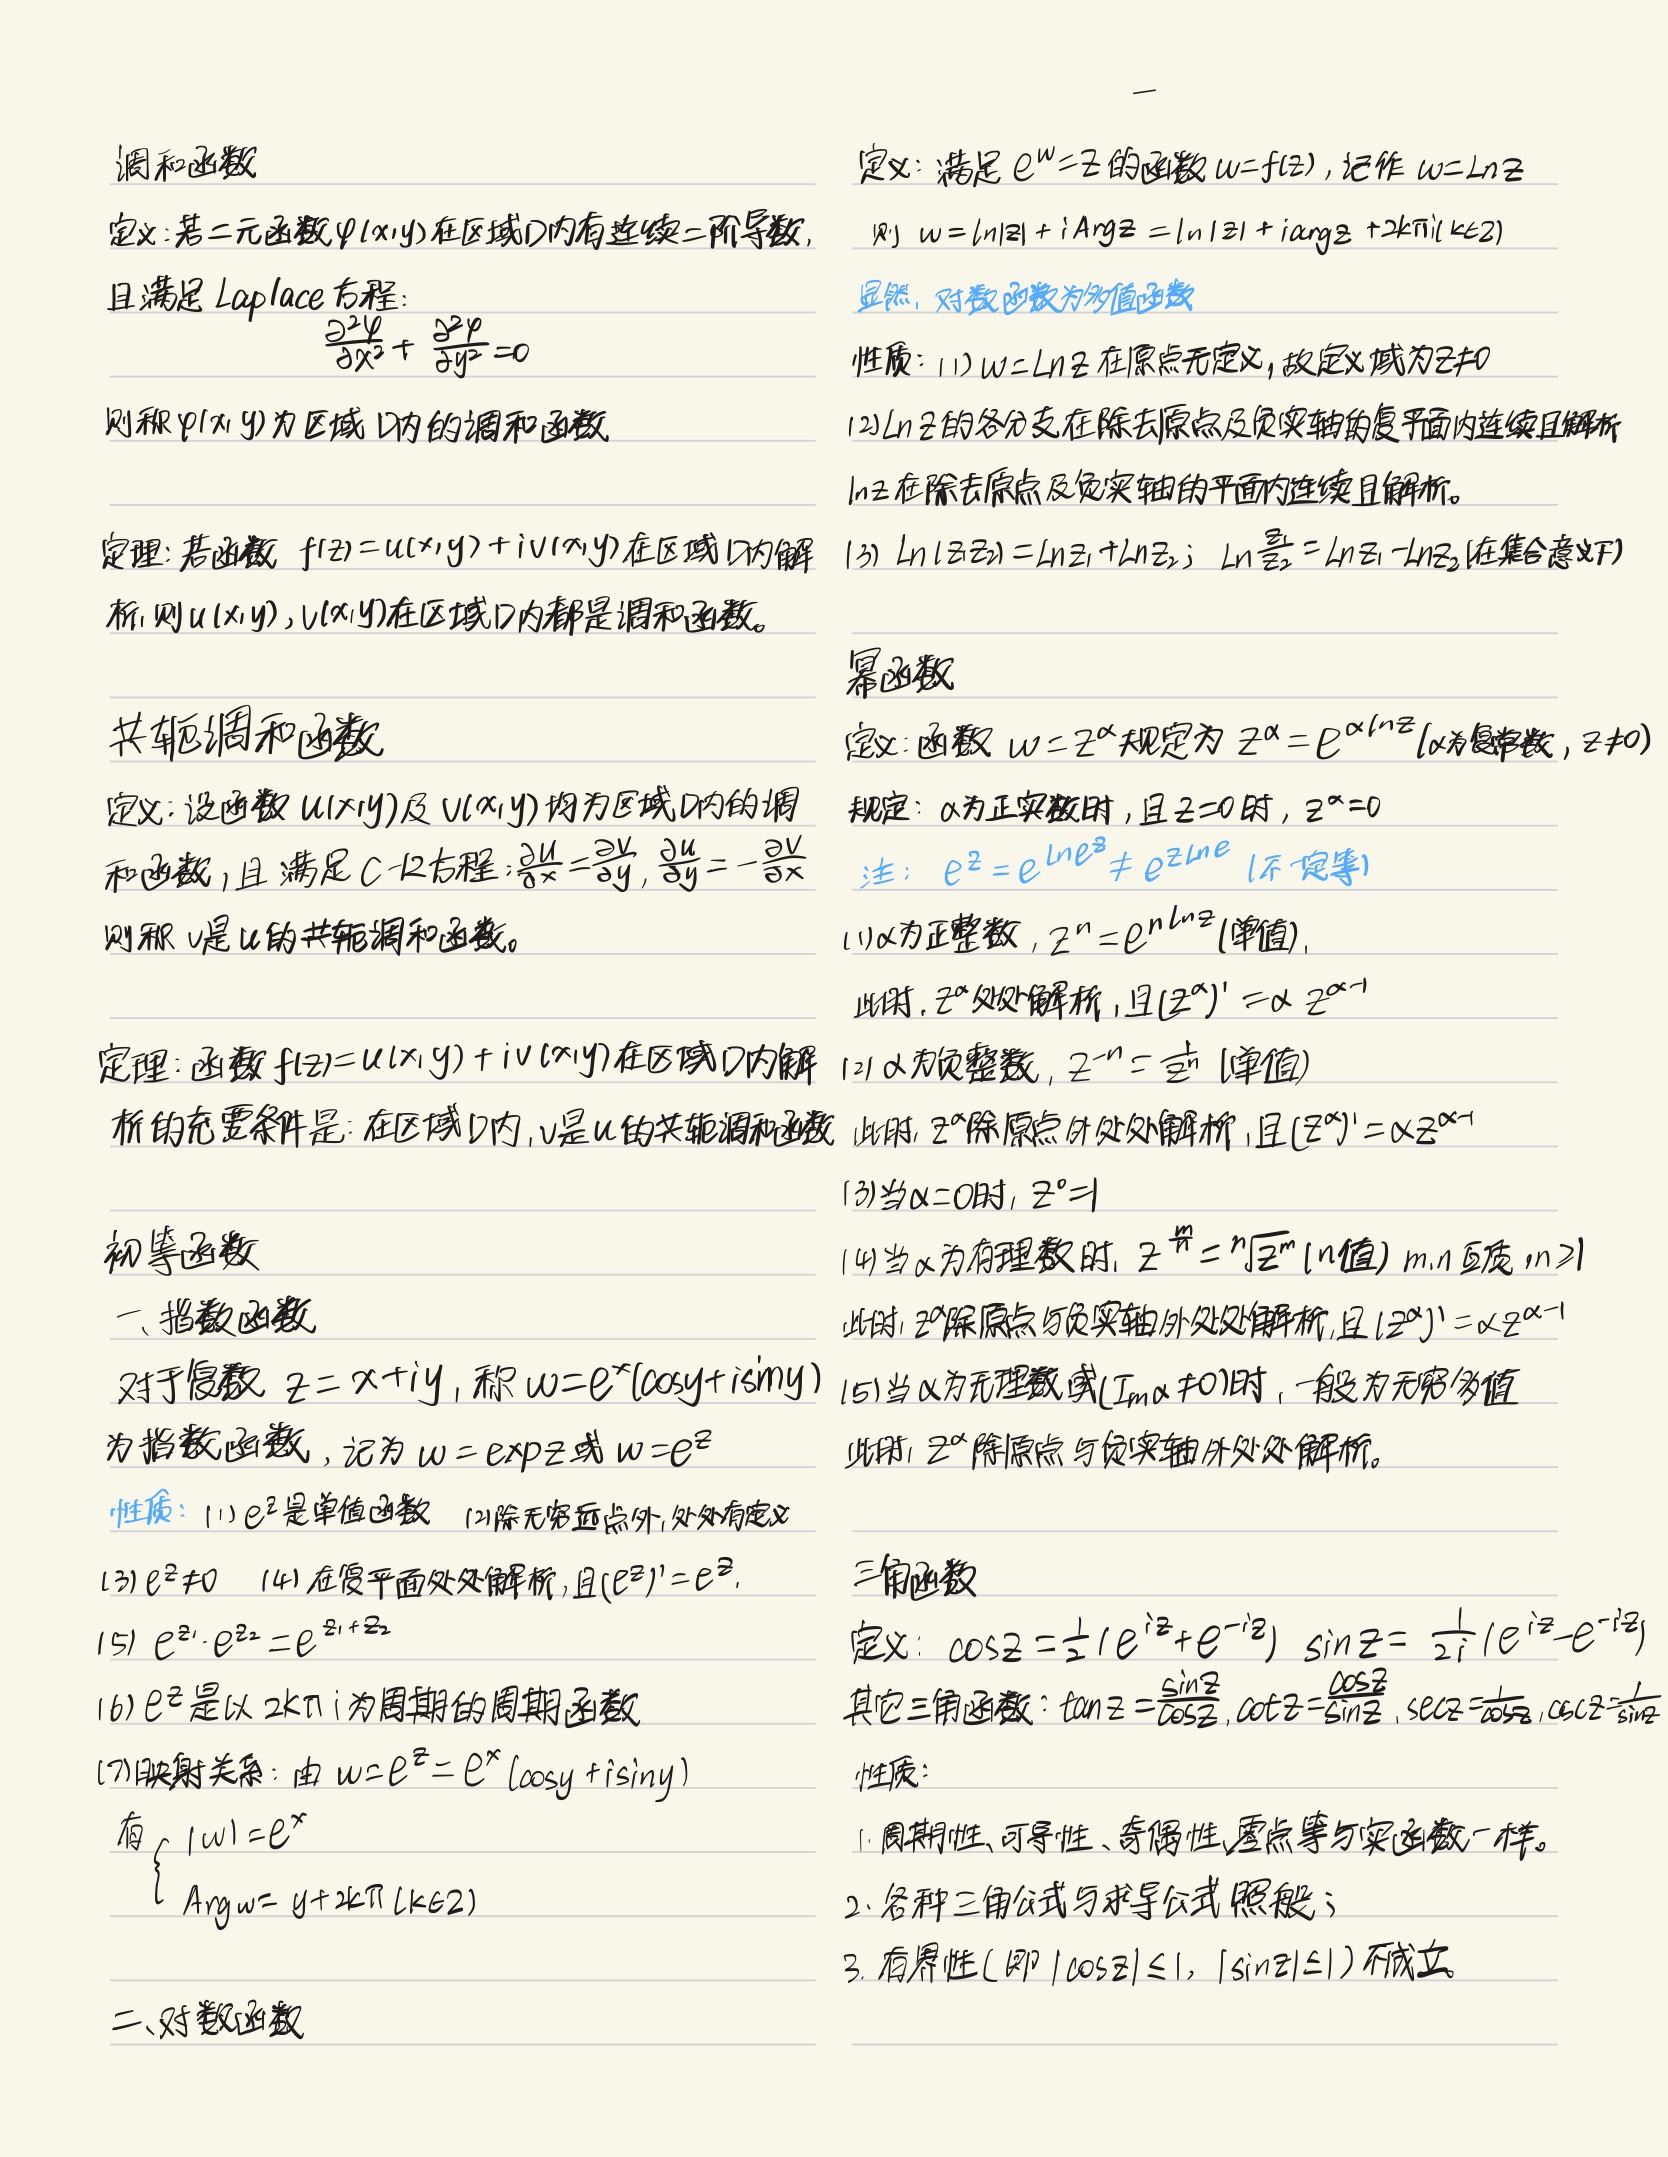 调和函数
定义:若二元函数φ(x,y)在区域D内有连续二阶导数,
且满足Laplace方程:
∂²φ/∂x² + ∂²φ/∂y² =0
则称φ(x,y)为区域D内的调和函数
定理:若函数 f(z)=u(x,y)+iv(x,y)在区域D内解
析,则u(x,y),v(x,y)在区域D内都是调和函数。
共轭调和函数
定义:设函数u(x,y)及v(x,y)均为区域D内的调
和函数,且满足C-R方程:∂u/∂x=∂v/∂y, ∂u/∂y=-∂v/∂x
则称v是u的共轭调和函数。
定理:函数f(z)=u(x,y)+iv(x,y)在区域D内解
析的充要条件是:在区域D内,v是u的共轭调和函数
初等函数
一、指数函数
对于复数 z=x+iy,称w=e^x(cosy+isiny)
为指数函数,记为w=expz或w=e^z
性质:(1)e^z是单值函数 (2)除无穷远点外,处处有定义
(3)e^z≠0 (4)在复平面处处解析,且(e^z)'=e^z.
(5) e^z₁·e^z₂=e^(z₁+z₂)
(6)e^z是以2kπi为周期的周期函数
(7)映射关系:由w=e^z=e^x(cosy+isiny)
有 { |w|=e^x
Argw=y+2kπ(k∈Z)
二、对数函数
定义:满足e^w=z的函数w=f(z),记作 w=Lnz
则 w=ln|z|+iArgz=ln|z|+iargz+2kπi(k∈Z)
显然,对数函数为多值函数
性质:(1)w=Lnz在原点无定义,故定义域为z≠0
(2)Lnz的各分支在除去原点及负实轴的复平面内连续且解析
lnz在除去原点及负实轴的平面内连续且解析。
(3) Ln(z₁z₂)=Lnz₁+Lnz₂; Ln z₁/z₂=Lnz₁-Lnz₂(在集合意义下)
幂函数
定义:函数 w=z^α规定为 z^α=e^(αlnz)(α为复常数,z≠0)
规定:α为正实数时,且z=0时,z^α=0
注: e^z=e^(Lne^z)≠e^(zLne) (不一定等)
(1)α为正整数,z^n=e^(nlnz)(单值),
此时,z^α处处解析,且(z^α)'=α z^(α-1)
(2)α为负整数,z^(-n)=1/z^n (单值)
此时,z^α除原点外处处解析,且(z^α)'=αz^(α-1)
(3)当α=0时,z^0=1
(4)当α为有理数时,z^(m/n)=ⁿ√z^m(n值) m,n互质,n≥1
此时,z^α除原点与负实轴外处处解析,且(z^α)'=αz^(α-1)
(5)当α为无理数或(Imα≠0)时,一般为无穷多值
此时,z^α除原点与负实轴外处处解析。
三角函数
定义: cosz=1/2(e^(iz)+e^(-iz)) sinz=1/2i(e^(iz)-e^(-iz))
其它三角函数:tanz=sinz/cosz,cotz=cosz/sinz,secz=1/cosz,cscz=1/sinz
性质:
1.周期性、可导性、奇偶性、零点等与实函数一样。
2.各种三角公式与求导公式照般;
3.有界性(即|cosz|≤1,|sinz|≤1)不成立。